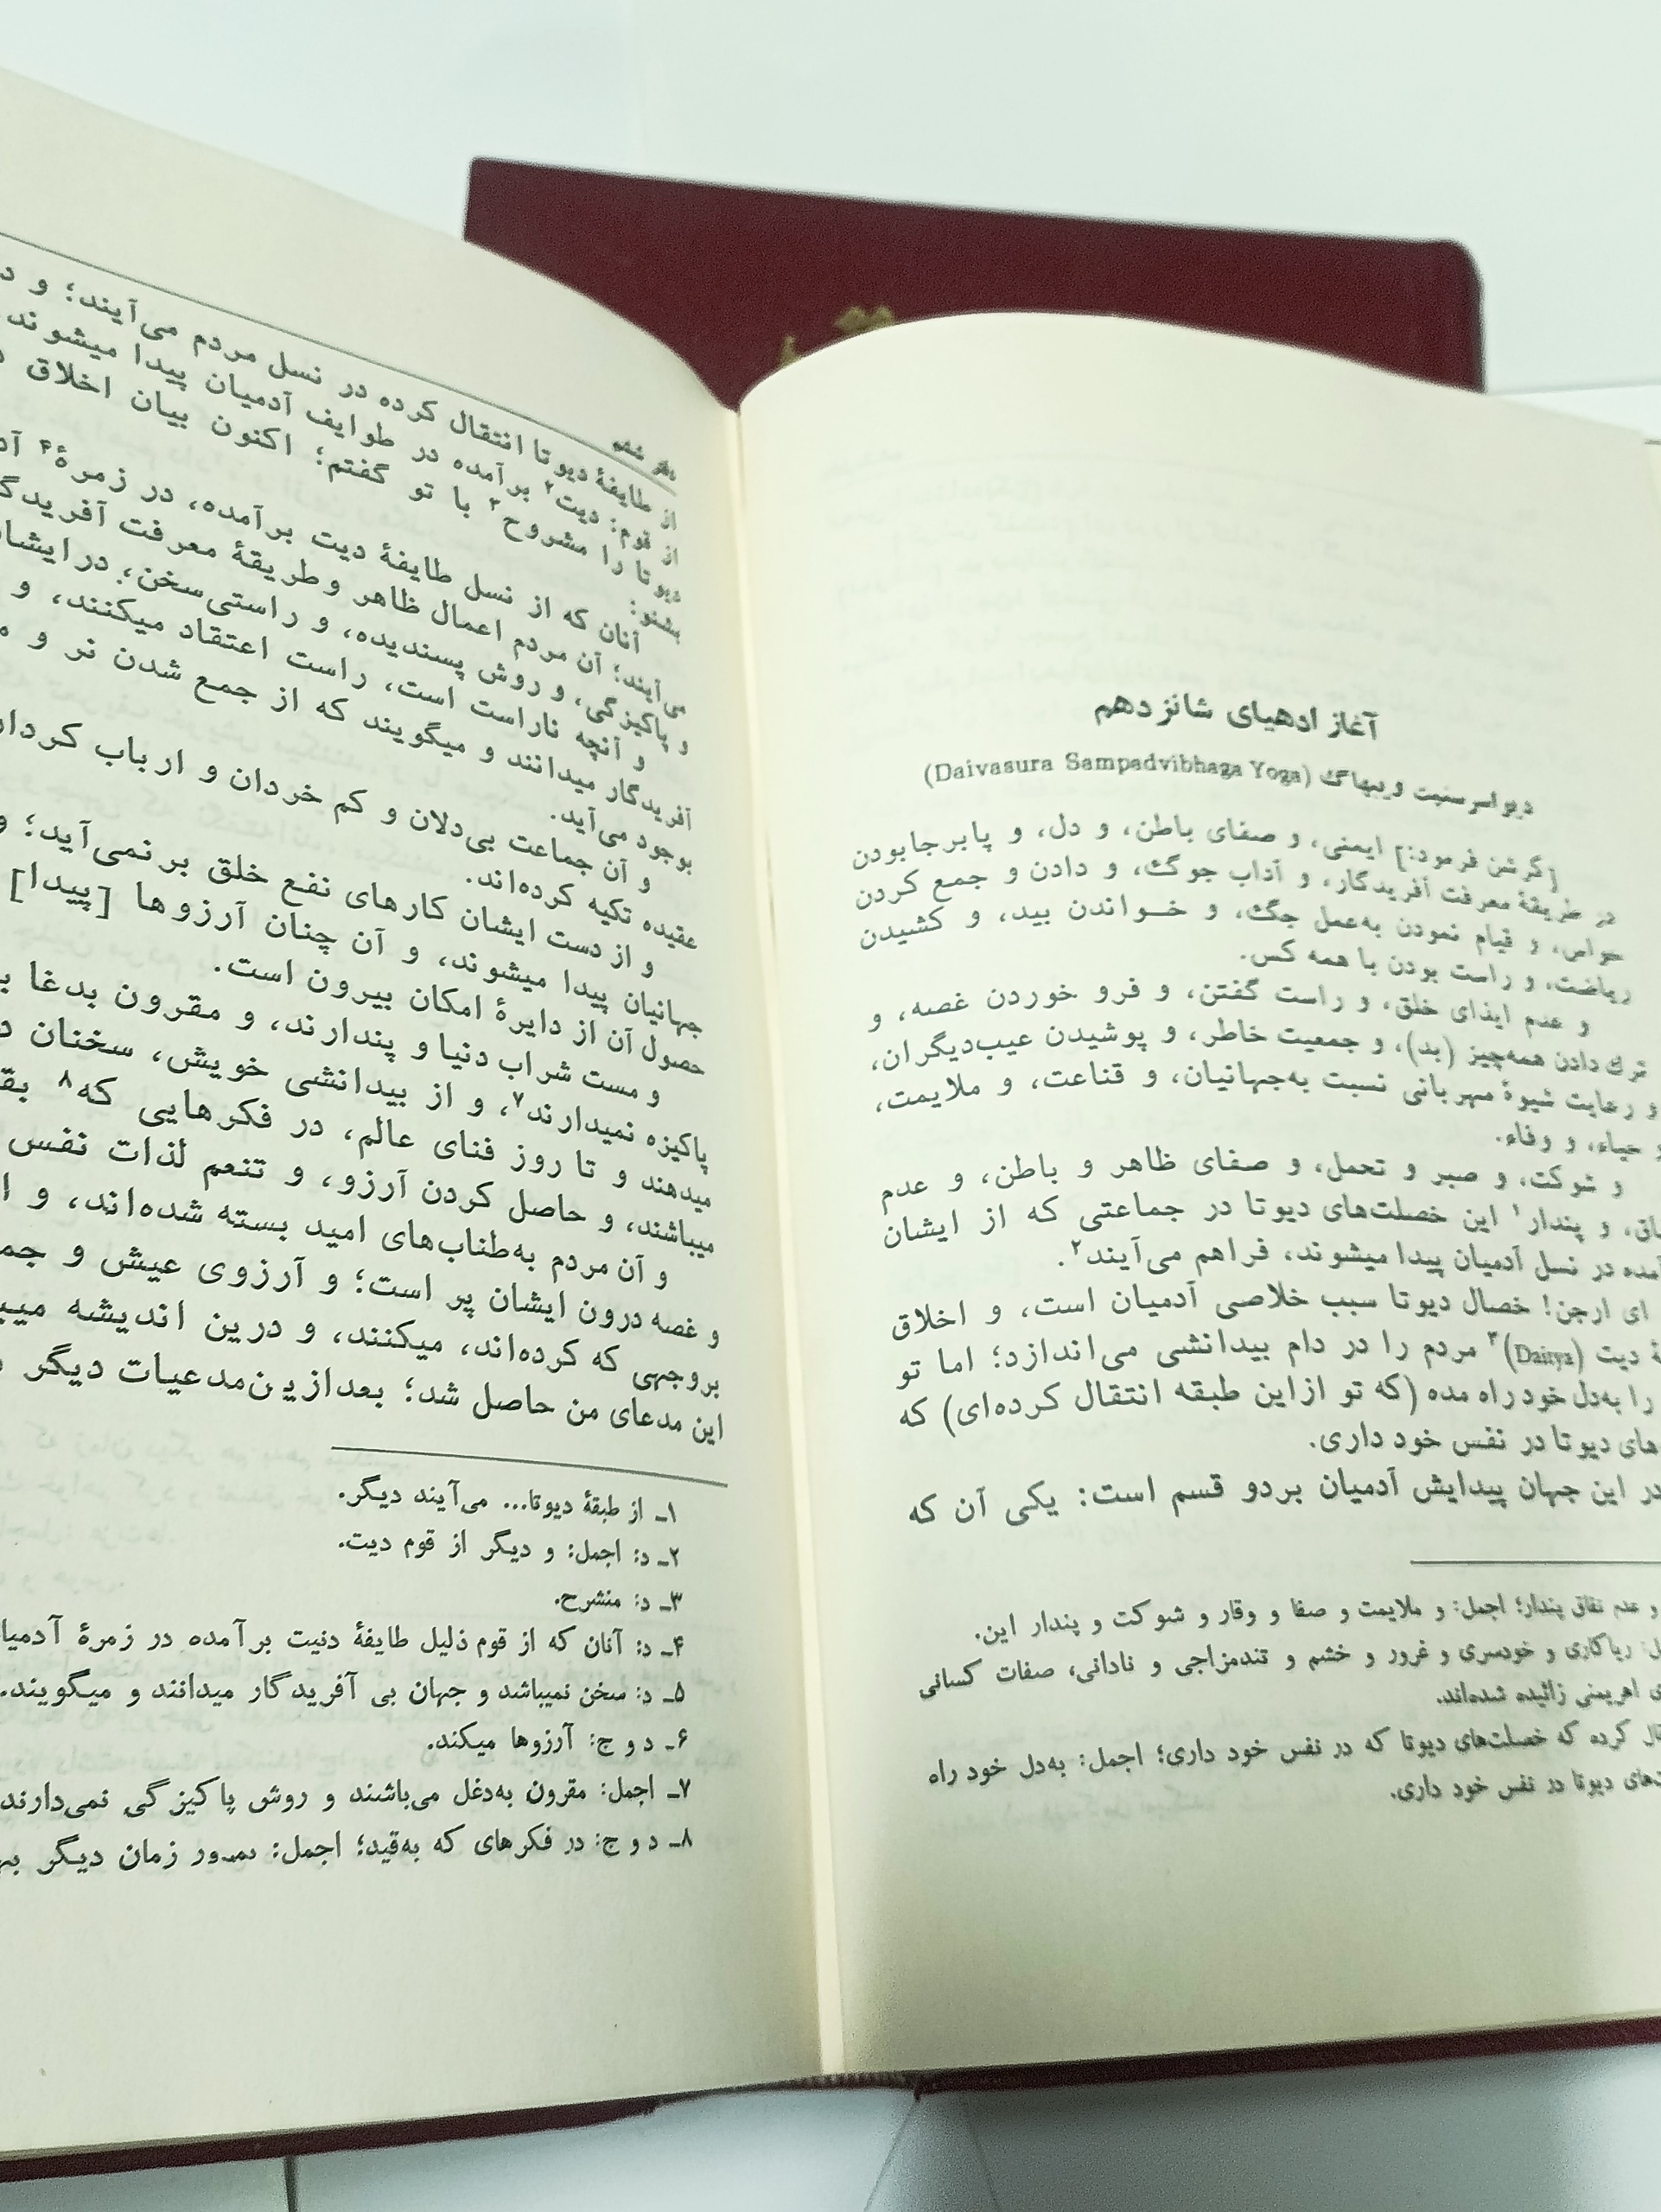 آغاز ادهیای شانزدهم
دیواسر سنپت ویبهاگ (Daivasura Sampadvibhaga Yoga)
[گرشن فرمود:] ایمنی، و صفای باطن، و دل، و پابرجابودن
در طریقهٔ معرفت آفریدگار، و آداب جوگ، و دادن و جمع کردن
حواس، و قیام نمودن به‌عمل جگ، و خــواندن بید، و کشیدن
ریاضت، و راست بودن با همه کس.
و عدم ایذای خلق، و راست گفتن، و فرو خوردن غصه، و
ترک دادن همه‌چیز (بد)، و جمعیت خاطر، و پوشیدن عیب‌دیگران،
و رعایت شیوهٔ مهربانی نسبت به‌جهانیان، و قناعت، و ملایمت،
و حیاء، و وفاء.
و شوکت، و صبر و تحمل، و صفای ظاهر و باطن، و عدم
و پندار۱ این خصلت‌های دیوتا در جماعتی که از ایشان
در نسل آدمیان پیدا میشوند، فراهم می‌آیند۲.
ای ارجن! خصال دیوتا سبب خلاصی آدمیان است، و اخلاق
دیت (Daitya)۳ مردم را در دام بیدانشی می‌اندازد؛ اما تو
را به‌دل خود راه مده (که تو ازاین طبقه انتقال کرده‌ای) که
های دیوتا در نفس خود داری.
در این جهان پیدایش آدمیان بردو قسم است: یکی آن که
و عدم نفاق پندار؛ اجمل: و ملایمت و صفا و وقار و شوکت و پندار این.
ریاکاری و خودسری و غرور و خشم و تندمزاجی و نادانی، صفات کسانی
اهریمنی زائیده شده‌اند.
کرده که خصلت‌های دیوتا که در نفس خود داری؛ اجمل: به‌دل خود راه
های دیوتا در نفس خود داری.
دفتر ششم
از طایفهٔ دیوتا انتقال کرده در نسل مردم می‌آیند؛ و
از قوم: دیت۲ برآمده در طوایف آدمیان پیدا میشوند
دیوتا را مشروح۳ با تو گفتم؛ اکنون بیان اخلاق
بشنو:
آنان که از نسل طایفهٔ دیت برآمده، در زمرهٔ۴
می‌آیند؛ آن مردم اعمال ظاهر وطریقهٔ معرفت
و پاکیزگی، و روش پسندیده، و راستی‌سخن، درایشان
و آنچه ناراست است، راست اعتقاد میکنند، و
آفریدگار میدانند و میگویند که از جمع شدن نر و
بوجود می‌آید.
و آن جماعت بی‌دلان و کم خردان و ارباب
عقیده تکیه کرده‌اند.
و از دست ایشان کارهای نفع خلق بر نمی‌آید؛
جهانیان پیدا میشوند، و آن چنان آرزوها [پیدا]
حصول آن از دایرهٔ امکان بیرون است.
و مست شراب دنیا و پندارند، و مقرون بدغا
پاکیزه نمیدارند۷، و از بیدانشی خویش، سخنان
میدهند و تا روز فنای عالم، در فکرهایی که۸
میباشند، و حاصل کردن آرزو، و تنعم لذات نفس
و آن مردم به‌طناب‌های امید بسته شده‌اند، و
و غصه درون ایشان پر است؛ و آرزوی عیش و
بروجهی که کرده‌اند، میکنند، و درین اندیشه
این مدعای من حاصل شد؛ بعدازین‌مدعیات دیگر
۱ـ از طبقهٔ دیوتا... می‌آیند دیگر.
۲ـ د: اجمل: و دیگر از قوم دیت.
۳ـ د: منشرح.
۴ـ د: آنان که از قوم ذلیل طایفهٔ دنیت برآمده در زمرهٔ
۵ـ د: سخن نمیباشد و جهان بی آفریدگار میدانند و میگویند.
۶ـ د و ج: آرزوها میکند.
۷ـ اجمل: مقرون به‌دغل می‌باشند و روش پاکیزگی نمی‌دارند
۸ـ د و ج: در فکرهای که به‌قید؛ اجمل: زمان دیگر